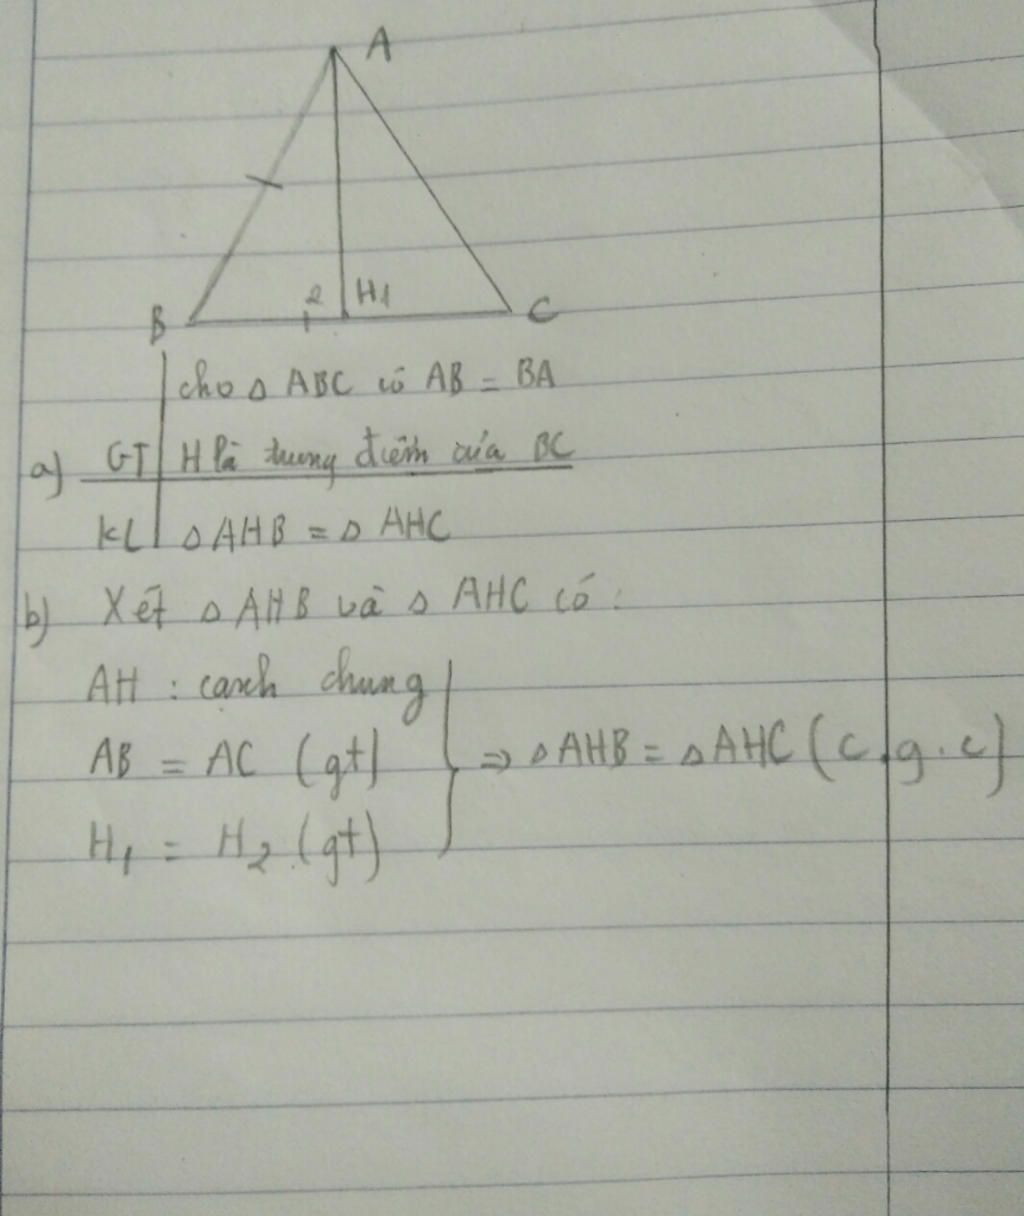 A
B 2 H1 C
cho △ ABC có AB = BA
a) GT H là trung điểm của BC
KL △ AHB = △ AHC
b) Xét △ AHB và △ AHC có :
AH : cạnh chung
AB = AC (gt) => △ AHB = △ AHC (c.g.c)
H₁ = H₂ (gt)